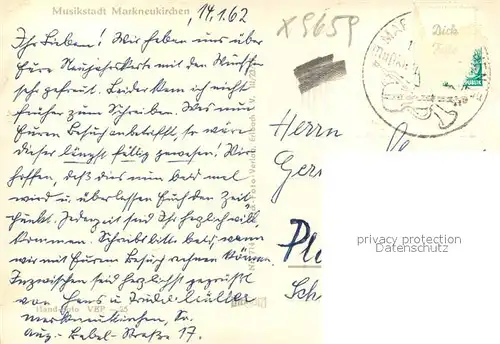 Musikstadt Markneukirchen
14.1.62
x 9659
Ihr Lieben! Wir haben uns über
Eure Neujahrskarte mit den
sehr gefreut. Leider kam ich nicht
früher zum Schreiben. Was nun
Euren Besuch anbetrifft, so wäre
dieser längst fällig gewesen! Wir
hoffen, daß dies nun bald mal
wird u. überlassen Euch den Zeit-
punkt. Jederzeit seid Ihr herzlich will-
kommen. Schreibt bitte bald, wann
wir mit Eurem Besuch rechnen können.
Inzwischen seid herzlichst gegrüßt
von Hans u. Trudel Müller
Markneukirchen, Sa.
Aug.-Bebel-Straße 17.
Herrn
Ger
Pl
Sch
privacy protection
Datenschutz